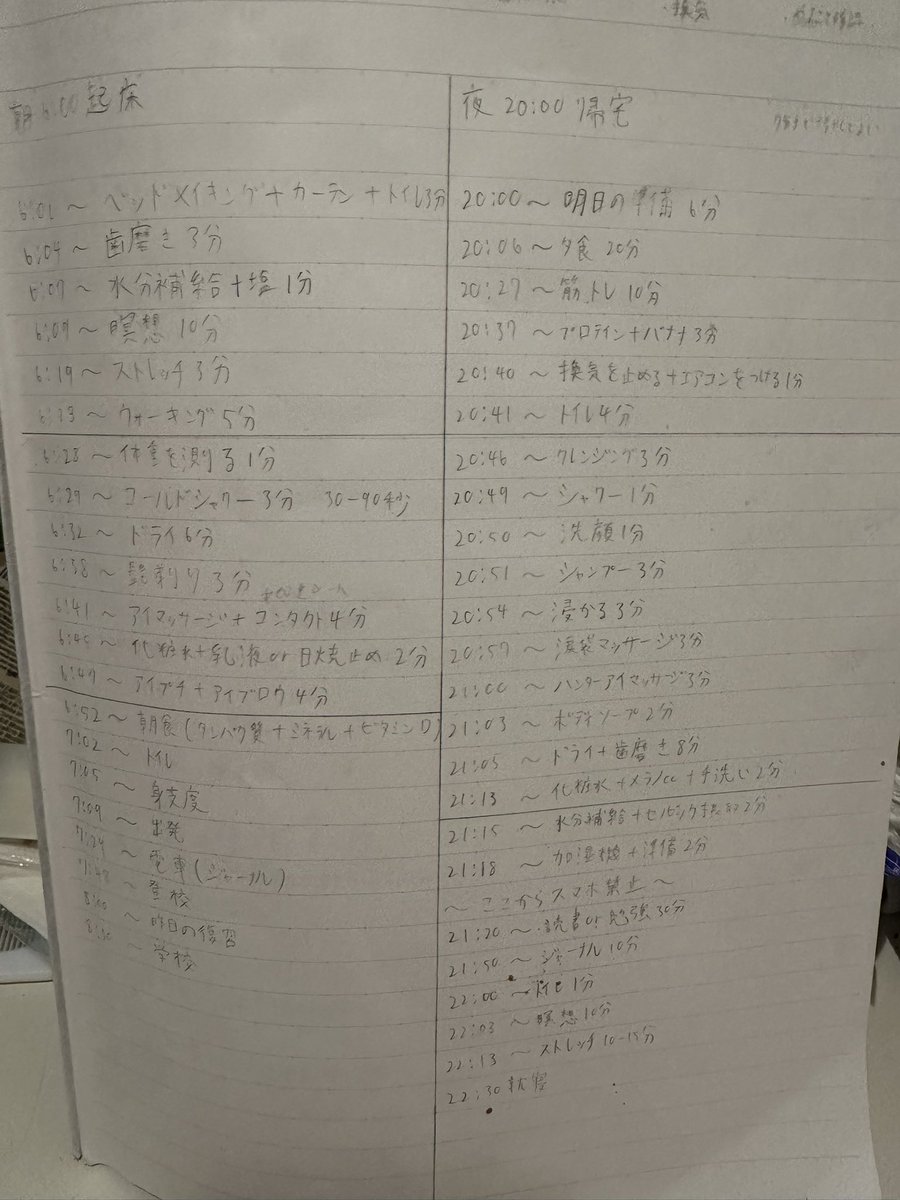 換気
朝 6:00 起床
6:01 ~ ベッドメイキング+カーテン+トイレ3分
6:04 ~ 歯磨き 3分
6:07 ~ 水分補給+塩 1分
6:09 ~ 瞑想 10分
6:19 ~ ストレッチ 3分
6:23 ~ ウォーキング 5分
6:28 ~ 体重を測る 1分
6:29 ~ コールドシャワー 3分 30-90秒
6:32 ~ ドライ 6分
6:38 ~ 髭剃り 3分
6:41 ~ アイマッサージ+コンタクト 4分
6:45 ~ 化粧水+乳液 or 日焼け止め 2分
6:47 ~ アイプチ+アイブロウ 4分
6:52 ~ 朝食 (タンパク質+ミネラル+ビタミンD)
7:02 ~ トイレ
7:05 ~ 身支度
7:09 ~ 出発
7:24 ~ 電車 (ジャーナル)
7:48 ~ 登校
8:00 ~ 昨日の復習
8:30 ~ 学校
夜 20:00 帰宅
20:00 ~ 明日の準備 6分
20:06 ~ 夕食 20分
20:27 ~ 筋トレ 10分
20:37 ~ プロテイン+バナナ 3分
20:40 ~ 換気を止める+エアコンをつける 1分
20:41 ~ トイレ 4分
20:46 ~ クレンジング 3分
20:49 ~ シャワー 1分
20:50 ~ 洗顔 1分
20:51 ~ シャンプー 3分
20:54 ~ 浸かる 3分
20:57 ~ 涙袋マッサージ 3分
21:00 ~ ハンターアイマッサージ 3分
21:03 ~ ボディソープ 2分
21:05 ~ ドライ+歯磨き 8分
21:13 ~ 化粧水+メラノcc+手洗い 2分
21:15 ~ 水分補給+セルピンク 2分
21:18 ~ 加湿機+準備 2分
~ ここからスマホ禁止 ~
21:20 ~ 読書 or 勉強 30分
21:50 ~ ジャーナル 10分
22:00 ~ トイレ 1分
22:03 ~ 瞑想 10分
22:13 ~ ストレッチ 10-15分
22:30 就寝